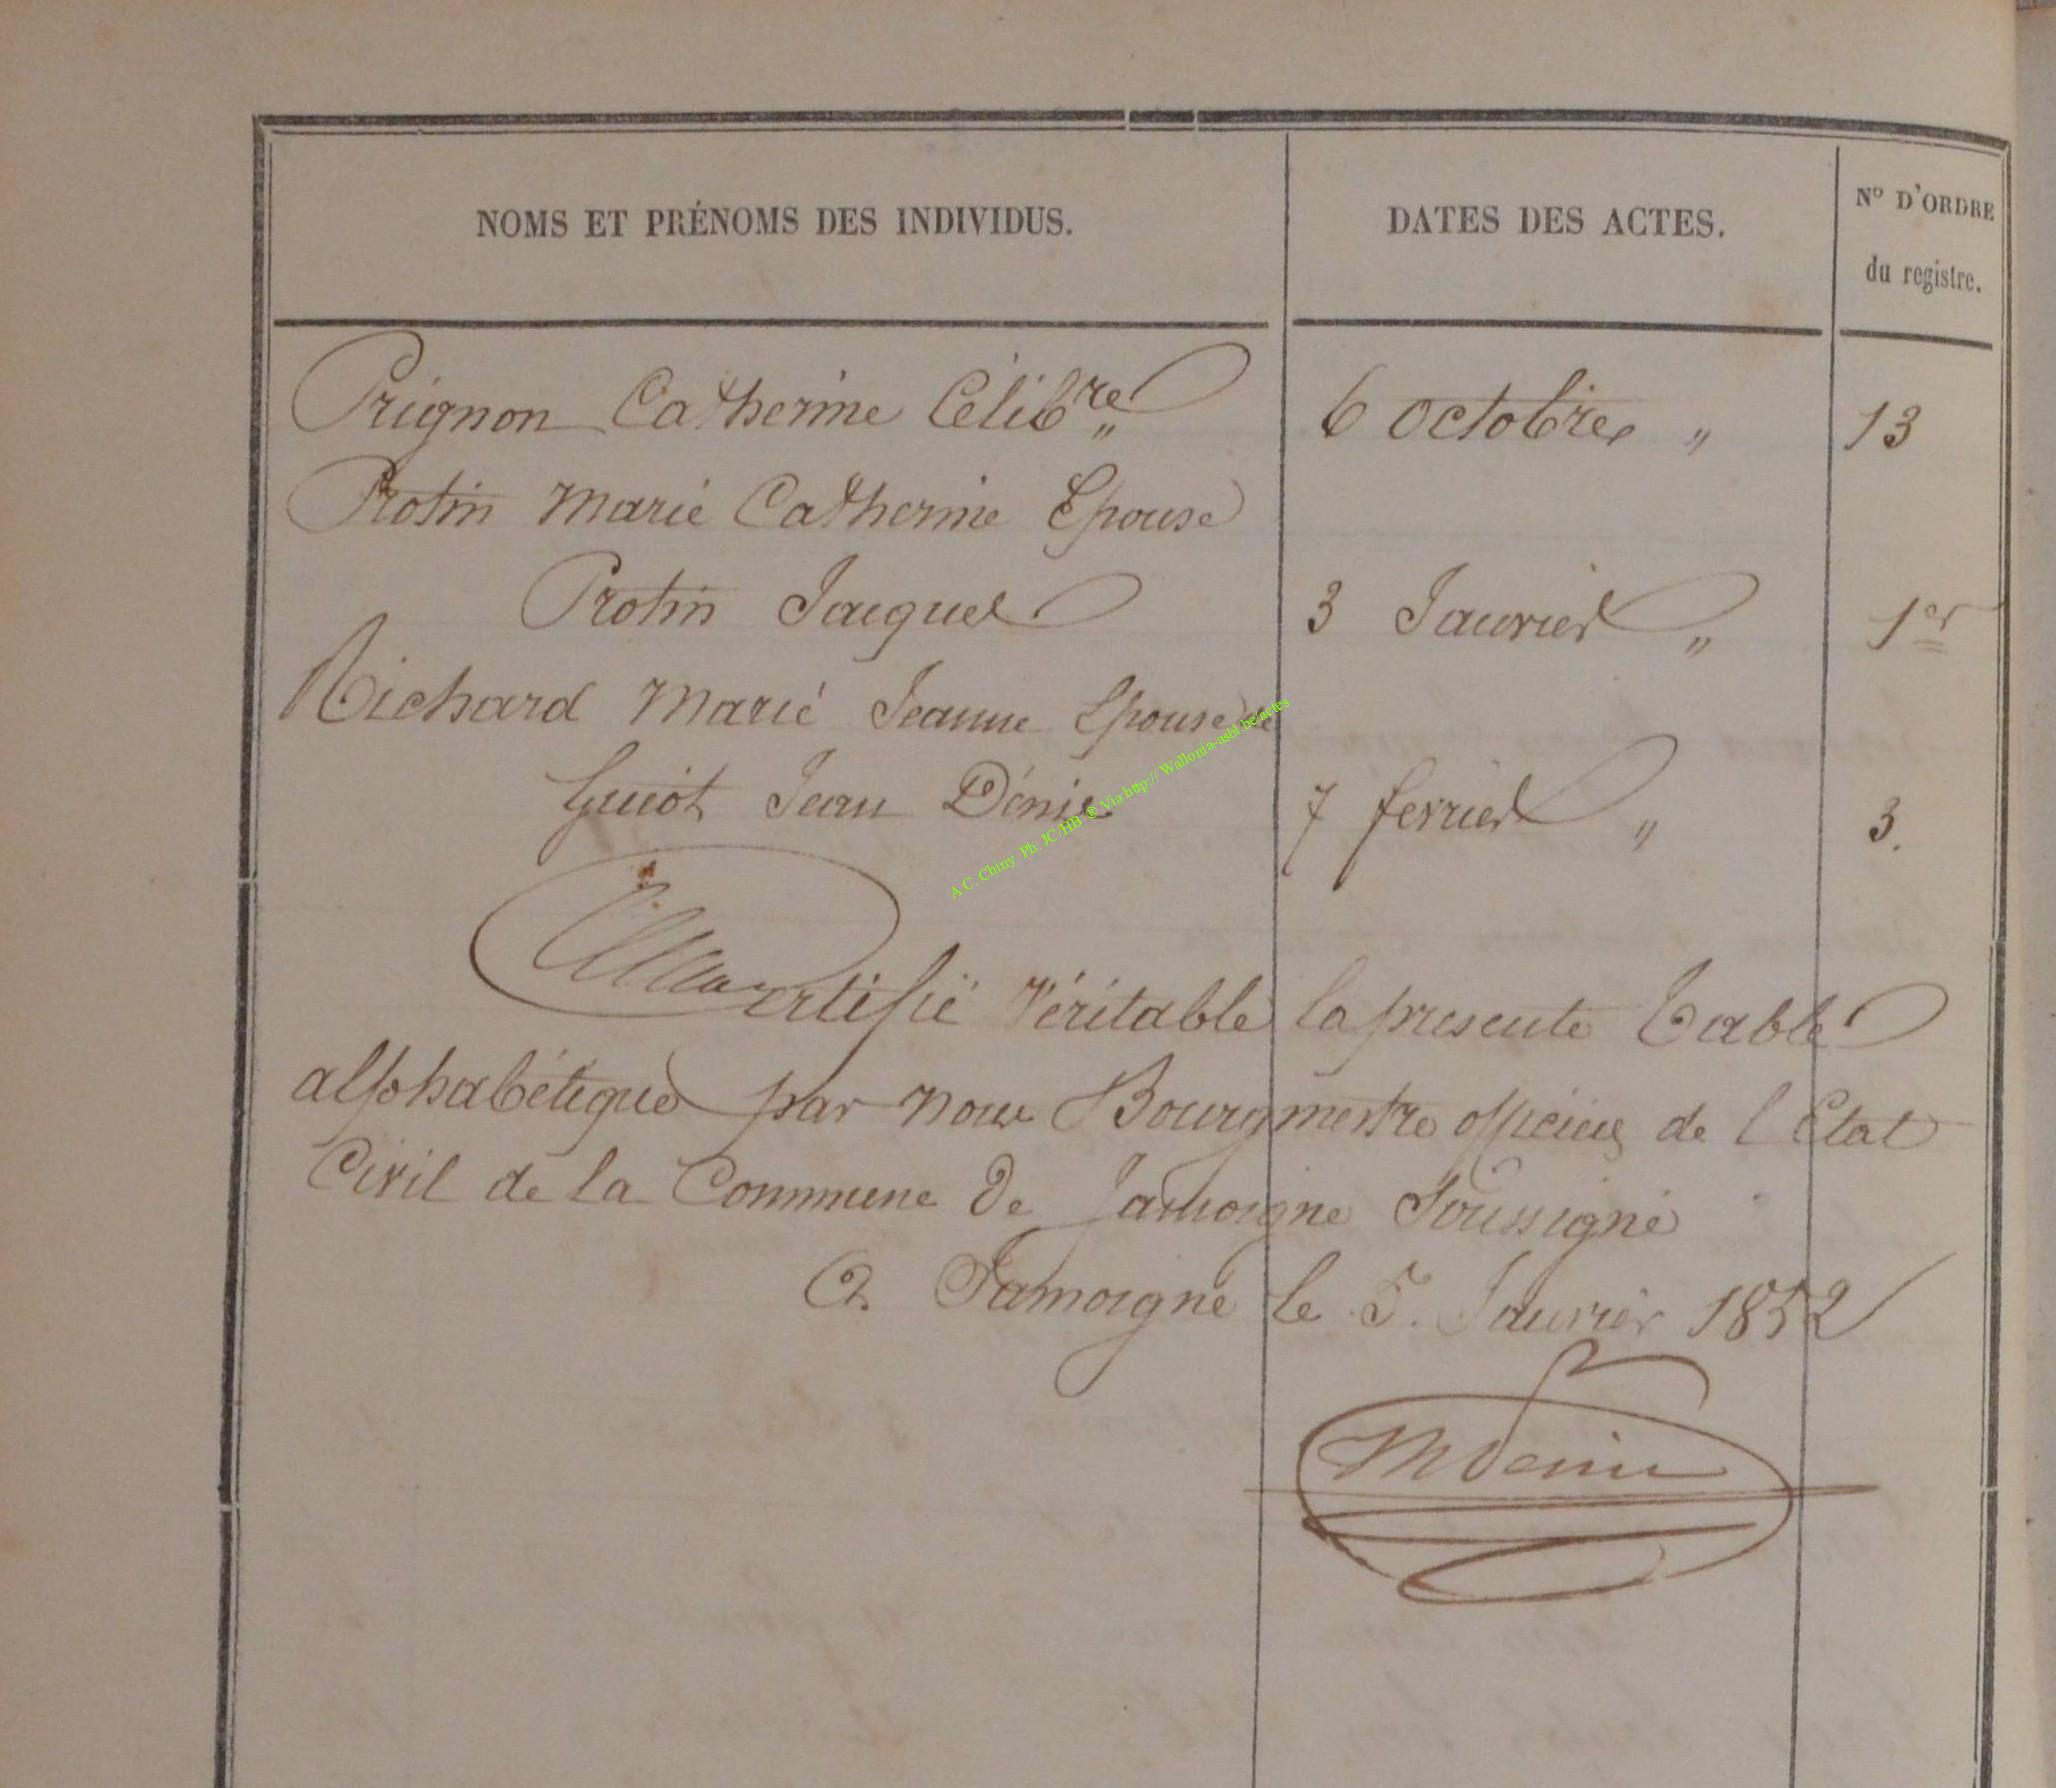 NOMS ET PRÉNOMS DES INDIVIDUS. DATES DES ACTES. N° D'ORDRE
du registre.
Prignon Catherine Célib.re " 6 octobre " 13
Protin Marie Catherine Epouse
Protin Jacques 3 Janvier " 1er
Richard Marie Jeanne Epouse de
Guiot Jean Dénis 7 fevrier " 3.
A.C. Chiny Ph. JC/HB ® Via http:// Wallonia-asbl.be/actes
Certifié Véritable la presente Table
alphabétique par nous Bourgmestre officier de l Etat
Civil de la Commune De Jamoigne Soussigné
A Jamoigne le 5. Janvier 1852